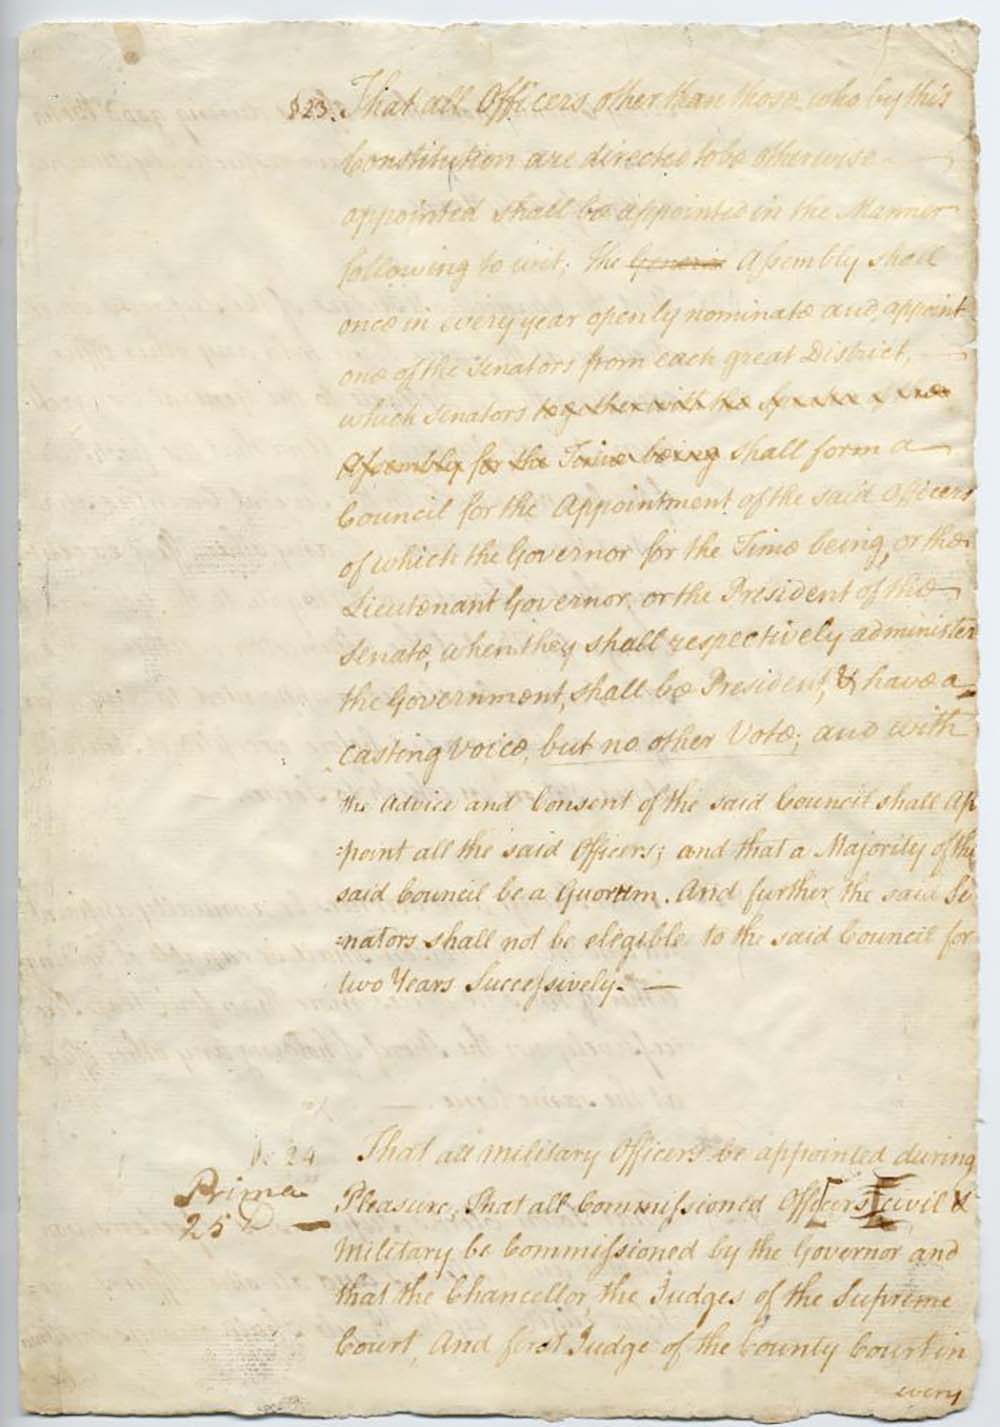 §23. That all Officers other than those, who by this
Constitution are directed to be otherwise
appointed shall be appointed in the Manner
following to wit; The General Assembly shall
once in every year openly nominate and appoint
one of the Senators from each great District,
which Senators together with the Speaker of the
Assembly for the Time being shall form a
Council for the Appointment of the said Officers
of which the Governor for the Time being, or the
Lieutenant Governor, or the President of the
Senate, when they shall respectively administer
the Government, shall be President, & have a
casting Voice, but no other Vote; and with
the advice and Consent of the said Council shall Ap
=point all the said Officers; and that a Majority of the
said Council be a Quorum. And further the said Se
=nators shall not be elegible to the said Council for
two Years Successively. —
24 That all military Officers be appointed during
Prima Pleasure, That all Commissioned Officers civil &
25 Military be Commissioned by the Governor and
that the Chancellor, the Judges of the Supreme
Court, And first Judge of the County Court in
every